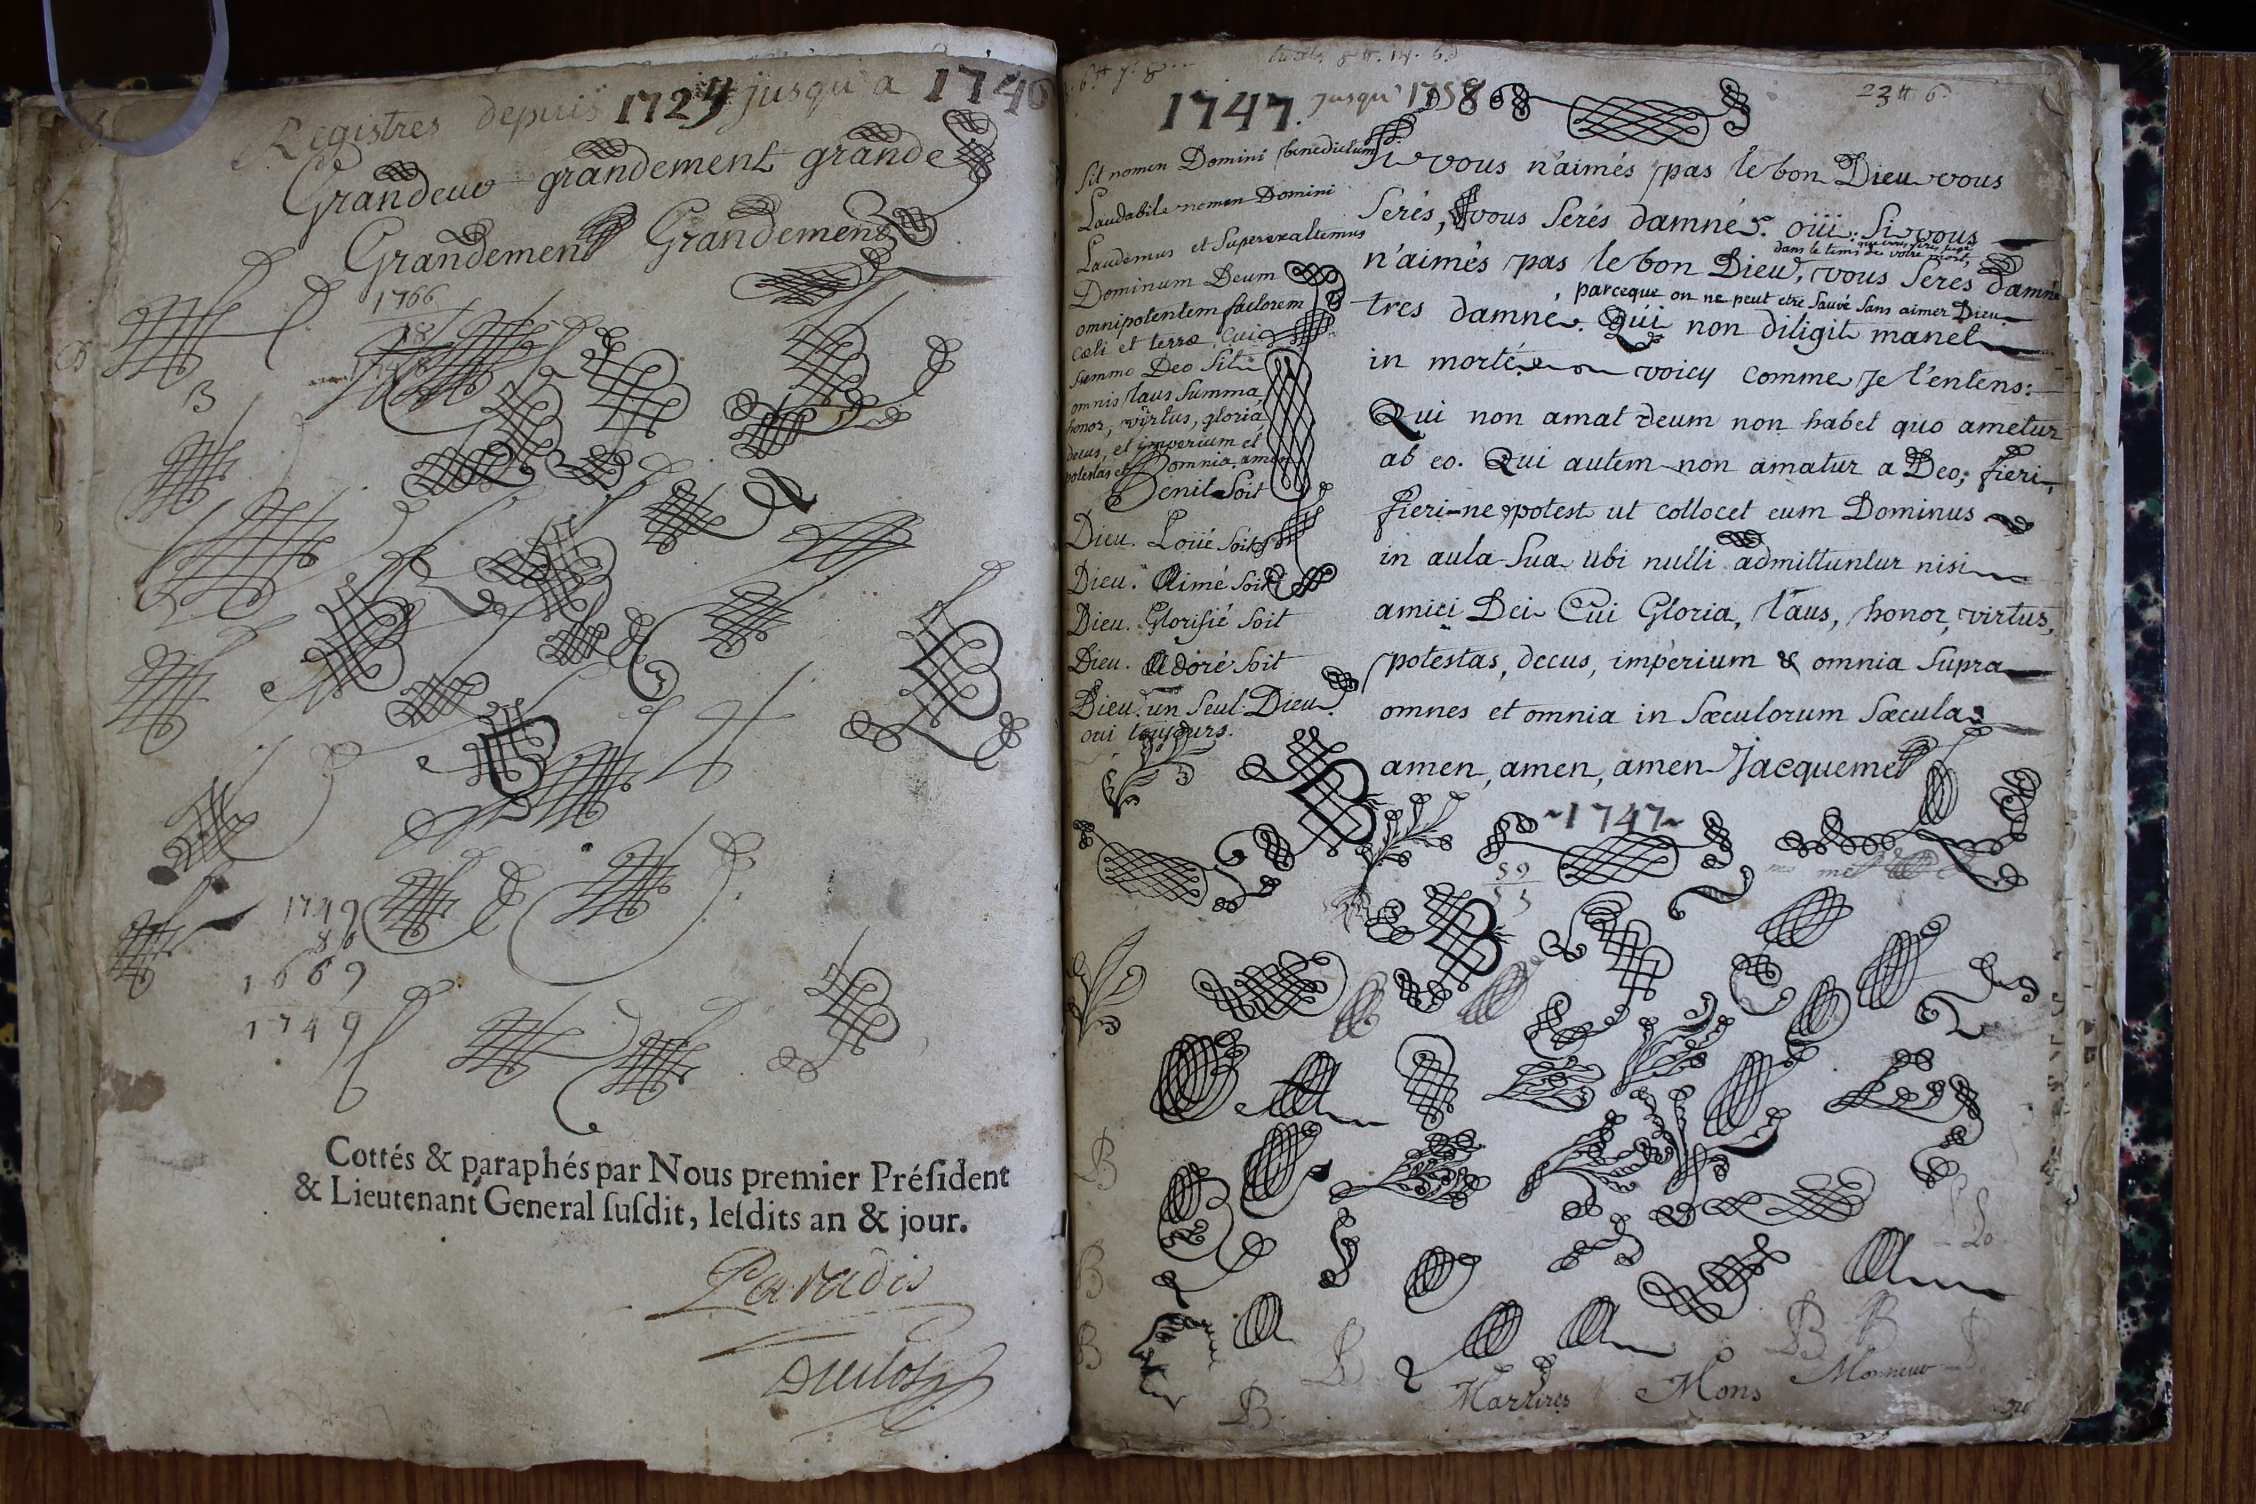 Registres depuis 1724 jusqu'a 1746
Grandeur grandement grande
Grandement Grandement
1766
18
B
1749
86
1669
1749
Cottés & paraphés par Nous premier Préſident
& Lieutenant General ſuſdit, leſdits an & jour.
Paradis
1747. jusqu' 1758
23 tt 6
Sit nomen Domini benedictum
Laudabile nomen Domini
Laudemus et Superexaltemus
Dominum Deum
omnipotentem factorem
Cœli et terræ, Cui
Summo Deo Sit
omnis laus Summa,
honor, virtus, gloria
decus, et imperium et
potestas et omnia. amen
Benit Soit
Dieu. Loüé Soit
Dieu. Aimé Soit
Dieu. Glorifié Soit
Dieu. Adoré Soit
Dieu. un Seul Dieu.
oui toujours.
Si vous n'aimés pas le bon Dieu vous
Serés, vous Serés damné. oüi. Si vous
dans le tems que vous serés jugé
de votre mort,
n'aimés pas le bon Dieu, vous Serés damné
parceque on ne peut etre Sauvé Sans aimer Dieu.
tres damné. Qui non diligit manet
in morté voicy comme Je l'entens:
Qui non amat deum non habet quo ametur
ab eo. Qui autem non amatur a Deo; fieri,
fieri-ne potest ut collocet eum Dominus
in aula Sua ubi nulli admittuntur nisi
amici Dei Cui Gloria, laus, honor, virtus,
potestas, decus, imperium & omnia Supra
omnes et omnia in Sæculorum Sæcula.
amen, amen, amen Jacquemet
~1747~
59
53
B
B
B
B
B
B
Martires
Mons
Monneur